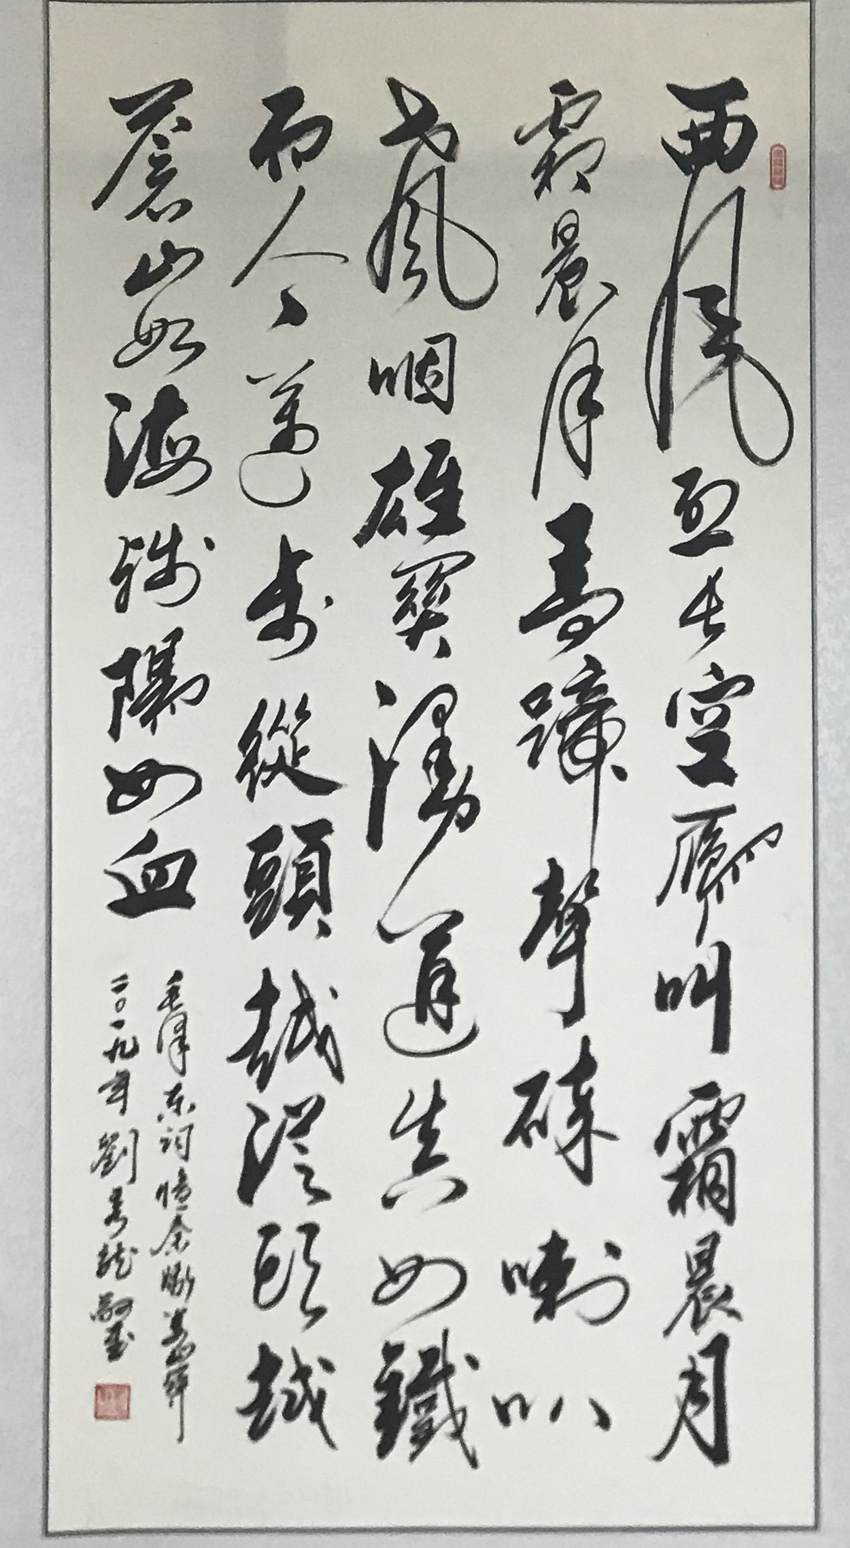 西風烈長空鴈叫霜晨月
霜晨月馬蹄聲碎喇叭
声咽雄關漫道真如鐵
而今邁步從頭越從頭越
蒼山如海殘陽如血
毛澤东词憶秦娥婁山關
二〇一九年劉